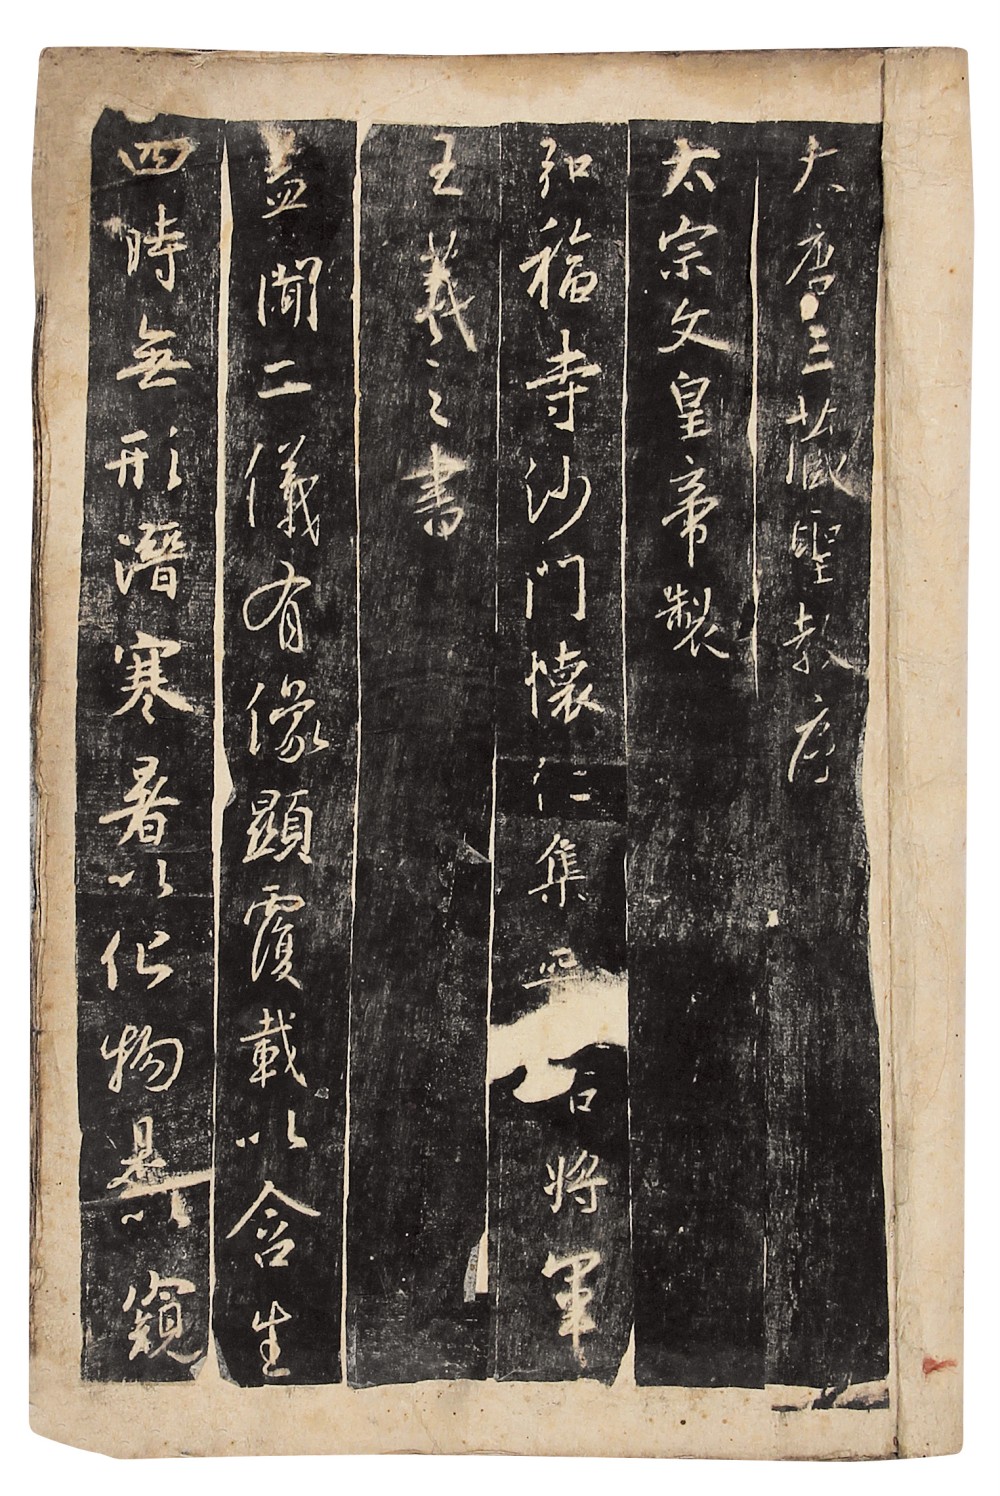 大唐三藏聖教序
太宗文皇帝製
弘福寺沙門懷仁集晉右將軍
王羲之書
蓋聞二儀有像顯覆載以含生
四時無形潛寒暑以化物是以窺